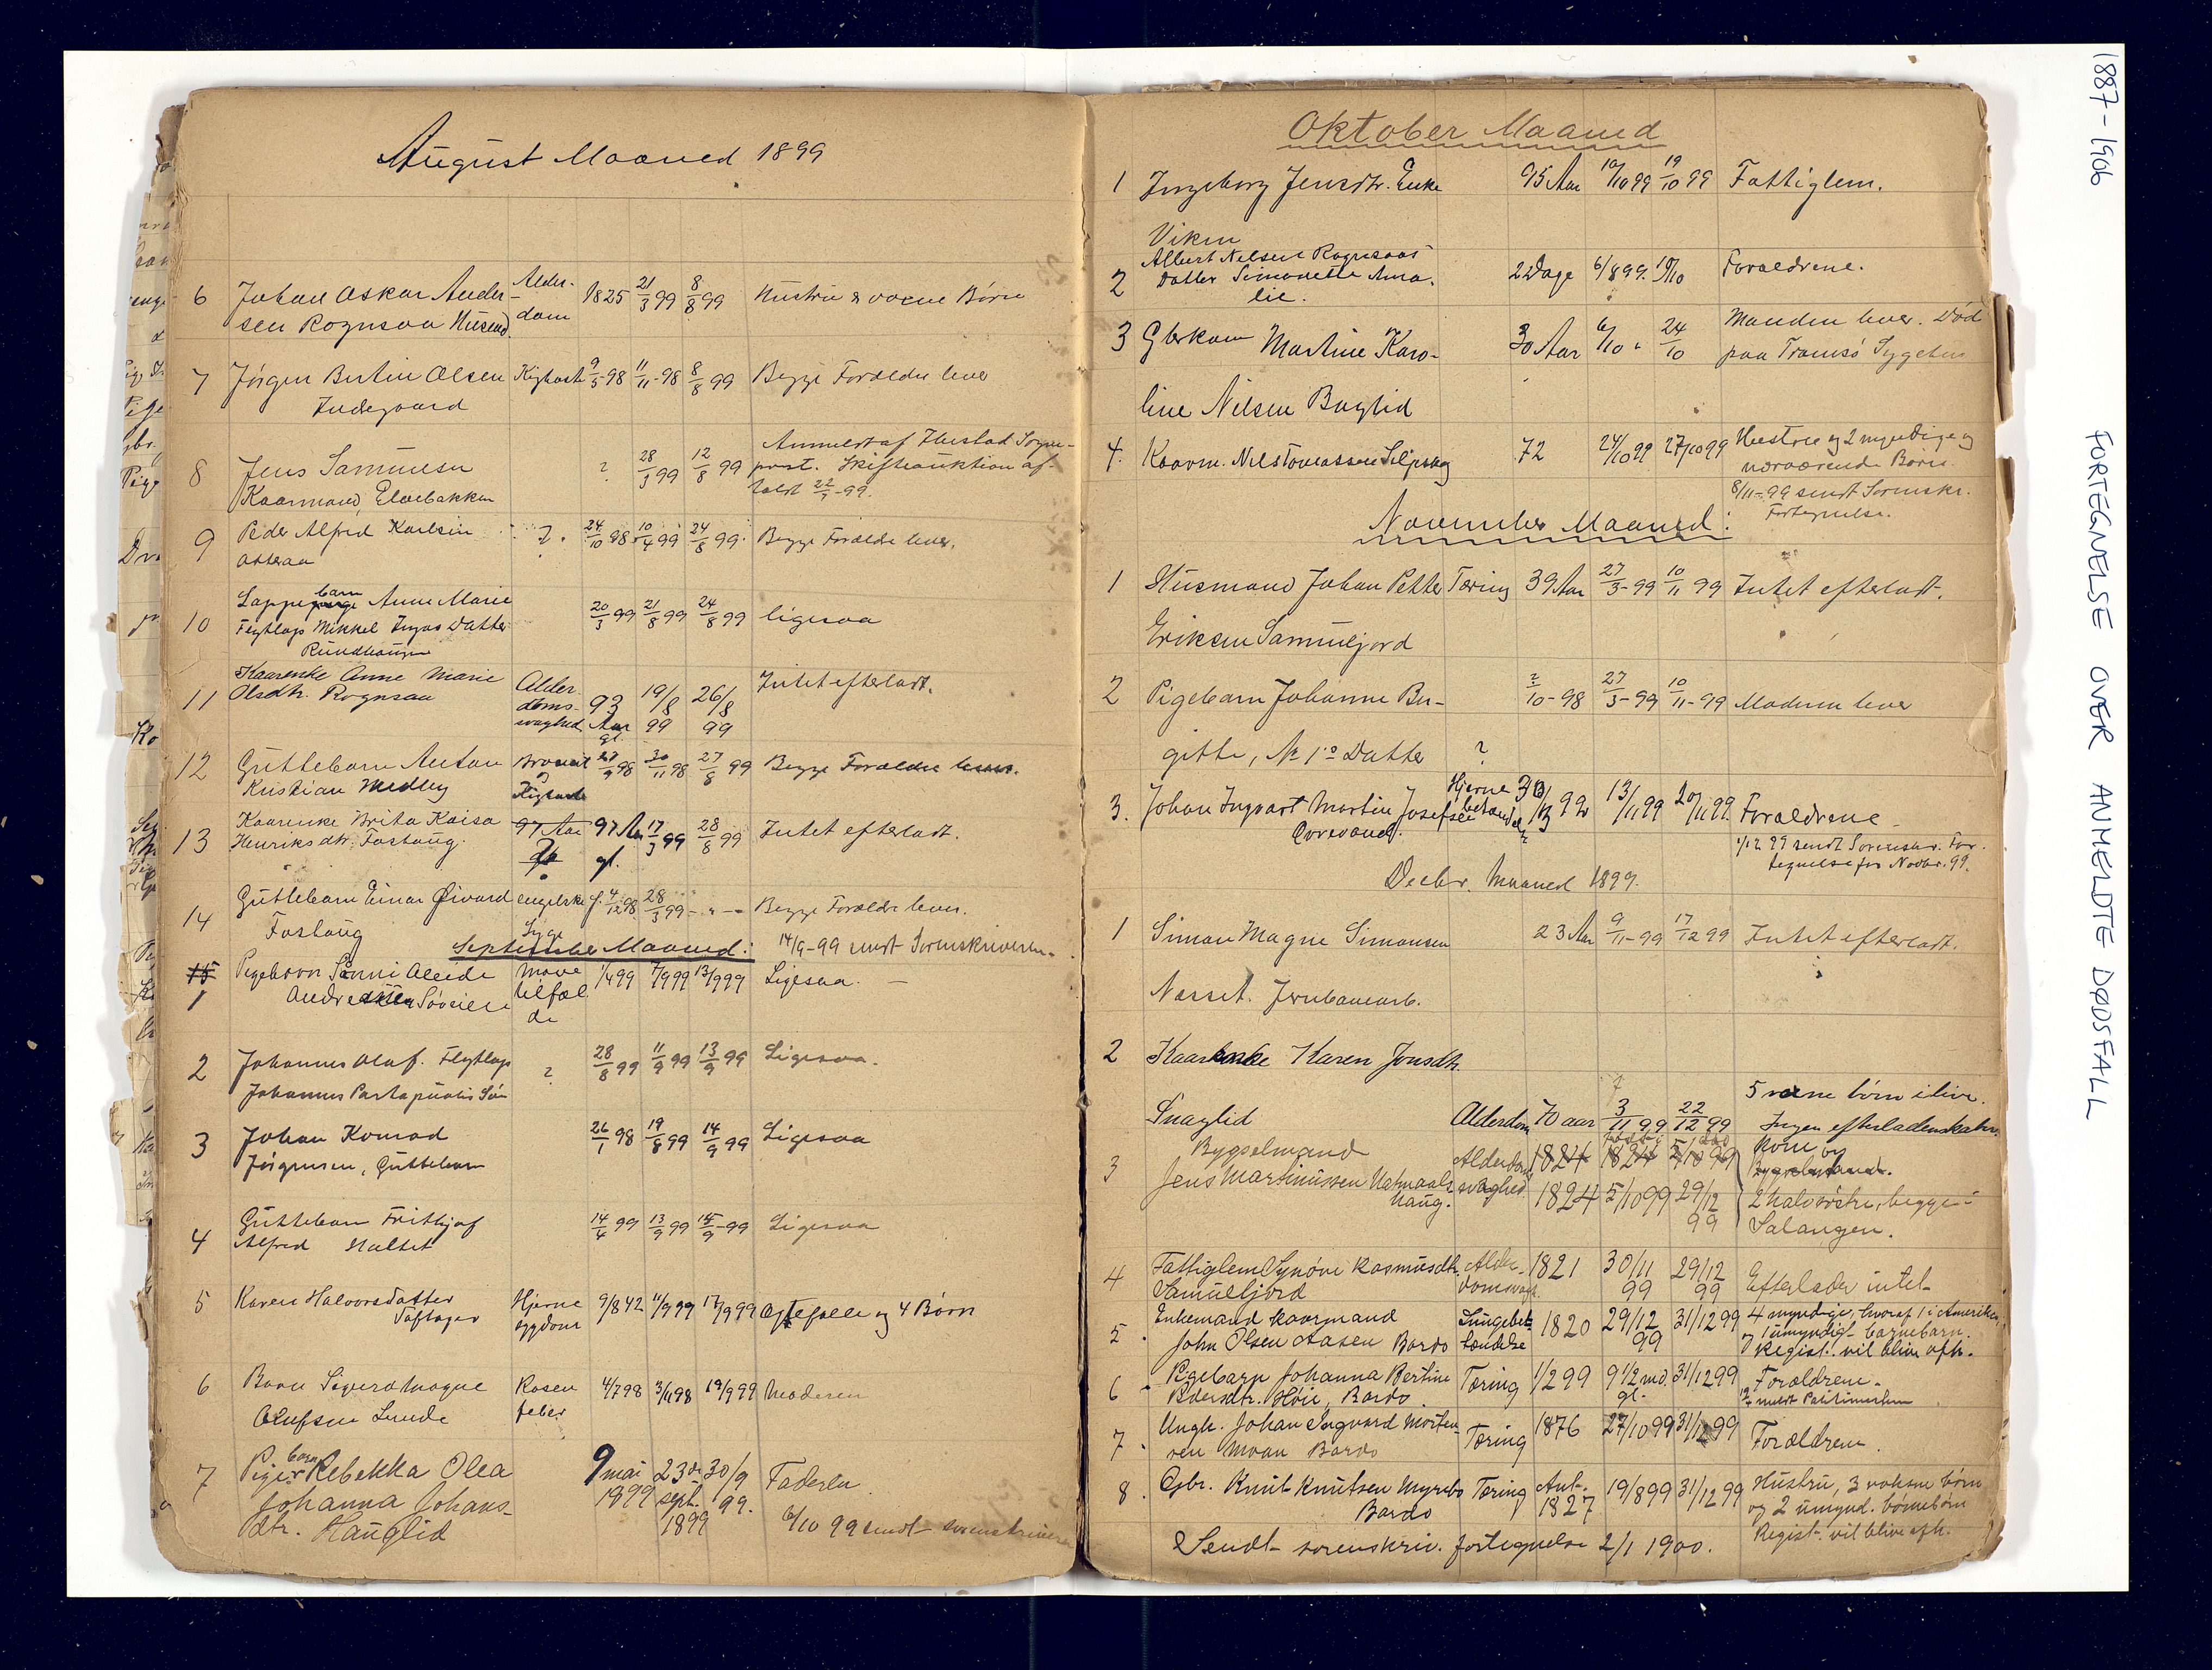 August Maaned 1899
6 Johan Oskar Ander- Alder- 1825 21/3 99 8/8 99 Hustru & voxne Børn
sen Rognsaa Husmd. dom
7 Jørgen Bertin Olsen Kighoste 9/5-98 11/11-98 8/8 99 Begge Forældre lever
Indegaard
8 Jens Samuelsen ? 28/3 99 12/8 99 Anmeldt af Ibestad Sogne-
præst. Skifteauktion af-
Kaarmand, Elvebakken holdt 22/7-99.
9 Peder Alfred Karlsen ? 24/10 98 10/4 99 24/8 99 Begge Forældre lever.
Aasteraa
10 Lappebarn Anne Marie 20/3 99 21/8 99 24/8 99 ligesaa
Flytlap Mikkel Ingas Datter
Rundhaugen
11 Kaarenke Anne Marie Alder- 93 19/8 26/8 Intet efterladt.
Olsdtr. Rognsaa doms- Aar 99 99
svaghed gl.
12 Guttebarn Anton Bronkit 27/9 98 30/11 98 27/8 99 Begge Forældre lever.
Kristian Medby Kighoste
13 Kaarenke Brita Kaisa 97 Aar 97 Aar 17/3 99 28/8 99 Intet efterladt.
Henriksdtr. Fosbaug. gl. gl.
14 Guttebarn Einar Øivard engelske S. 4/12 98 28/3 99 - " - Begge Forældre lever.
Fosbaug Syge
September Maaned: 14/9-99 sendt Sorenskriveren.
15 Pigebarn Sanni Aleide Mave 1/4 99 7/9 99 13/9 99 Ligesaa. -
1 Andreassen Søveien tilfæl
de
2 Johannes Olaf. Flytlap ? 28/8 99 11/9 99 13/9 99 Ligesaa.
Johannes Partapuolis Søn
3 Johan Konrad 26/1 98 19/8 99 14/9 99 Ligesaa
Jørgensen, Guttebarn
4 Guttebarn Frithjof 14/4 99 13/9 99 15/9-99 Ligesaa
Alfred Moltet
5 Karen Halvorsdatter Hjerne 9/8 42 11/9 99 17/9 99 Ægtefælle og 4 Børn
Toftager sygdom
6 Barn Sigurd Magne Rosen 4/7 98 3/11 98 19/9 99 Moderen
Olufsen Lunde feber
7 Pigebarn Rebekka Olea 9 mai 23de 30/9 Faderen.
Johanna Johans- 1899 sept. 99.
dtr. Hauglid 1899 6/10 99 sendt sorenskriver
Oktober Maaned
1 Ingeborg Jensdtr. Enke 95 Aar 10/10 99 19/10 99 Fattiglem.
Viken
2 Albert Nelsen Rognsaas 22 Dage 6/8 99. 19/10 Forældrene.
Datter Simonette Ama-
lie.
3 Gbrkone Martine Karo- 30 Aar 6/10 " 24/10 Manden lever. Død
paa Tromsø Sygehus
line Nilsen Boglid
4. Kaarm. Nils Tomassen Liljeskog 72 24/10 99 27/10 99 Hustru og 2 myndige og
nærværende Børn.
8/11-99 sendt Sorenskr.
Fortegnelse.
November Maaned:
1 Husmand Johan Petter Tæring 39 Aar 27/3-99 10/11 99 Intet efterladt.
Eriksen Samueljord
2 Pigebarn Johanne Bir- ?/10-98 27/3-99 10/11-99 Moderen lever
gitte, No 1's Datter ?
3. Johan Ingvart Martin Josefsen Hjerne 30/3 99 13/11 99 20/11 99. Forældrene
Øvrevand. betændelse 1/12 99 sendt Sorenskr. For-
tegnelse for Novbr. 99.
Decbr. Maaned 1899.
1 Simon Magne Simonsen 23 Aar 9/11-99 17/12 99 Intet efterladt.
Næsset. Jernbanearb.
2 Kaarenke Karen Jonsdtr.
5 vxne børn i live.
Snaglid Alderdom 70 aar 3/11 99 22/12 99 Ingen efterladenskaber.
3 Bygselmand Alderdoms 1824 1824 5/10 99 Kone og
Jens Martinussen Hatmaals svaghed 1824 5/10 99 29/12 2 halvsøstre, begge i
haug. 99 Salangen.
4 Fattiglem Synøve Rasmusdtr. Alder- 1821 30/11 29/12 Efterlader intet
Samueljord domssvagh. 99 99
5. Enkemand kaarmand Lungebe- 1820 29/12 31/12 99 4 myndige, hvoraf 1 i Amerika,
John Olsen Aasen Bardo tændelse 99 og 1 umyndigt barnebarn.
Regist. vil blive afh.
6 - Pigebarn Johanna Bertine Tæring 1/2 99 9 1/2 md. 31/12 99 Forældrene.
Pedersdtr. Høie, Bardo. gl. meldt Politimesteren
7. Ungk. Johan Ingvard Morten- Tæring 1876 27/10 99 31/12 99 Forældrene.
sen Moan Bardo
8. Gbr. Knut Knutsen Myrebo Tæring Ant. 19/8 99 31/12 99 Hustru, 3 voksne børn
Bardo 1827 og 2 umynd. børnebørn
Regist. vil blive afh.
Sendt sorenskriv. fortegnelse 2/1 1900.
1887-1906 FORTEGNELSE OVER ANMELDTE DØDSFALL